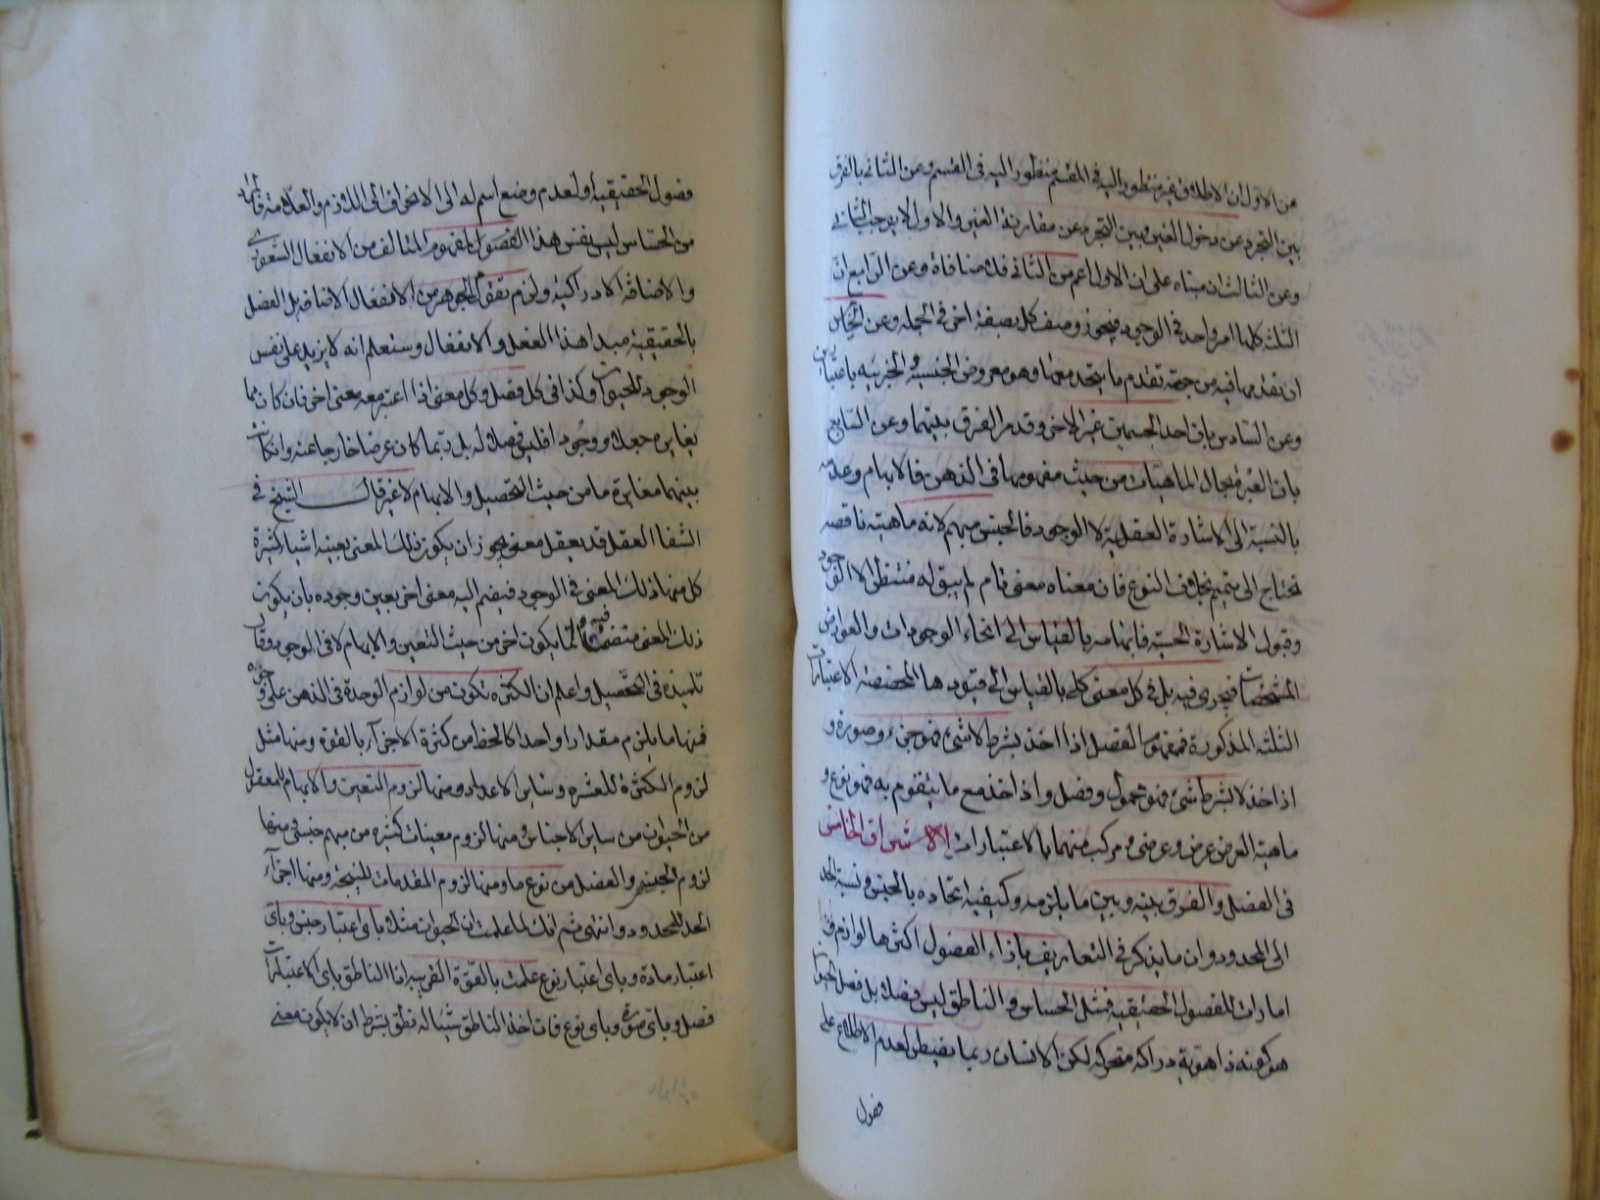 عن الاول ان الاطلاق غير منظور اليه فى المقسم منظور اليه فى القسم وعن الثانى بالفرق
بين التجرد عن دخول الغير وبين التجرد عن مقارنة الغير والاول لا يوجب الثانى
وعن الثالث ان مبناه على ان الاول اعم من الثانى فلا منافاة وعن الرابع ان
الثلثة كلها امر واحد فى الوجود فيجوز وصف كل بصفة اخرى فى الجملة وعن الخامس
ان تقدمها فيه من جهة تقدم ما يتحد معها وهو معروض الجنسية والجزئيه باعتبارين
وعن السادس بان احد الجسمين غير الاخر وقد مر الفرق بينهما وعن السابع
بان العبرة بحال الماهيات من حيث مفهومها فى الذهن فالابهام وعدمه
بالنسبة الى الاشارة العقلية لا الوجود فالجنس مبهم لانه ماهية ناقصه
تحتاج الى متمم بخلاف النوع فان معناه معنى تام لم يبق له منتظر الا الوجود
وقبول الاشارة الحسية فابهامه بالقياس الى انحاء الوجودات والعوارض
المشخصات فيجرى فيه بل فى كل معنى كلى بالقياس الى قيودها المخصصة الاعتبارات
الثلثه المذكورة فمفهوم الفصل اذا اخذ بشرط لا شئ فهو جزء وصورة و
اذا اخذ لا بشرط شئ فهو محمول وفصل واذا اخذ مع ما يتقوم به فهو نوع و
ماهية العرض عرض وعرضى ومركب منهما بالاعتبارات الاشراق الخامس
فى الفصل والفرق بينه وبين ما يلزمه وكيفية اتحاده بالجنس ونسبة الحد
الى المحدود وان ما يذكر فى التعاريف بازاء الفصول اكثرها لوازم و
امارات للفصول الحقيقية فمثل الحساس والناطق ليس بفصل بل فصل الحيوان
هو كونه ذا هوية دراكة متحركة لكن الانسان ربما يضطر لعدم الاطلاع على
فصول
فصول الحقيقية او لعدم وضع اسم له الى الانحراف الى اللوازم والعلامة فالمراد
من الحساس ليس نفس هذا الفصول المفهوم المتالف من الانفعال الشعورى
والاضافة الادراكية ولزم تقوم الجوهر من الانفعال الاضافه بل الفصل
بالحقيقية مبدا هذا الفعل والانفعال وستعلم انه لا يزيد على نفس
الوجود للحيوان وكذا فى كل فصل وكل معنى اذا اعتبر معه معنى اخر فان كان مما
يغايره جعلا ووجودا فليس فصلا له بل ربما كان عرضا خارجا عنه وان كان
بينهما مغايرة ما من حيث التحصيل والابهام لا غير قال الشيخ فى
الشفا العقل قد يعقل معنى يجوز ان يكون ذلك المعنى بعينه اشياء كثيرة
كل منها ذلك المعنى فى الوجود فيضم اليه معنى اخر يعين وجوده بان يكون
ذلك المعنى متضمنا فيه انما يكون اخر من حيث التعين والابهام لا فى الوجود وقال
تلميذه فى التحصيل واعلم ان الكثرة تكون من لوازم الوحدة فى الذهن على وجوه
فمنها ما يلزم مقدارا واحدا كالخط من كثرة الاجزاء بالقوه ومنها مثل
لزوم الكثرة للعشرة وساير الاعداد ومنها لزوم التعين والابهام للمعقول
من الحيوان من ساير الاجناس ومنها لزوم معينات كثيره من مبهم جنسى ومنها
لزوم الجنس والفصل من نوع ما ومنها لزوم المقدمات للنتيجة ومنها اجزاء
الحد للمحدود وانتهى ثم انك لما علمت ان الحيوان مثلا باى اعتبار جنس وباى
اعتبار مادة وباى اعتبار نوع علمت بالقوة القريبه ان الناطق باى الاعتبارات
فصل وباى صورة وباى نوع فان اخذ الناطق شيئا له نطق بشرط ان لا يكون معنى